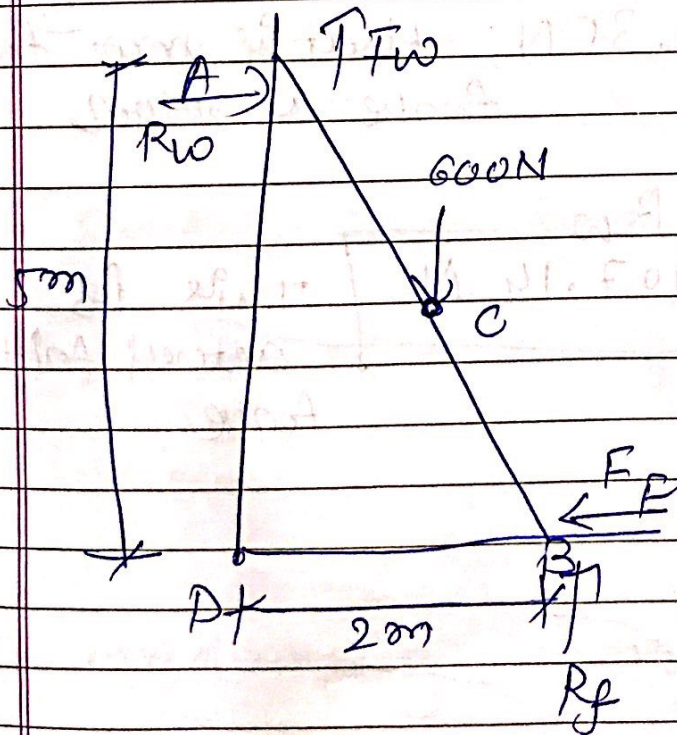 ↑Fw
A
Rw
600N
5m
C
F
B
D
2m
Rf